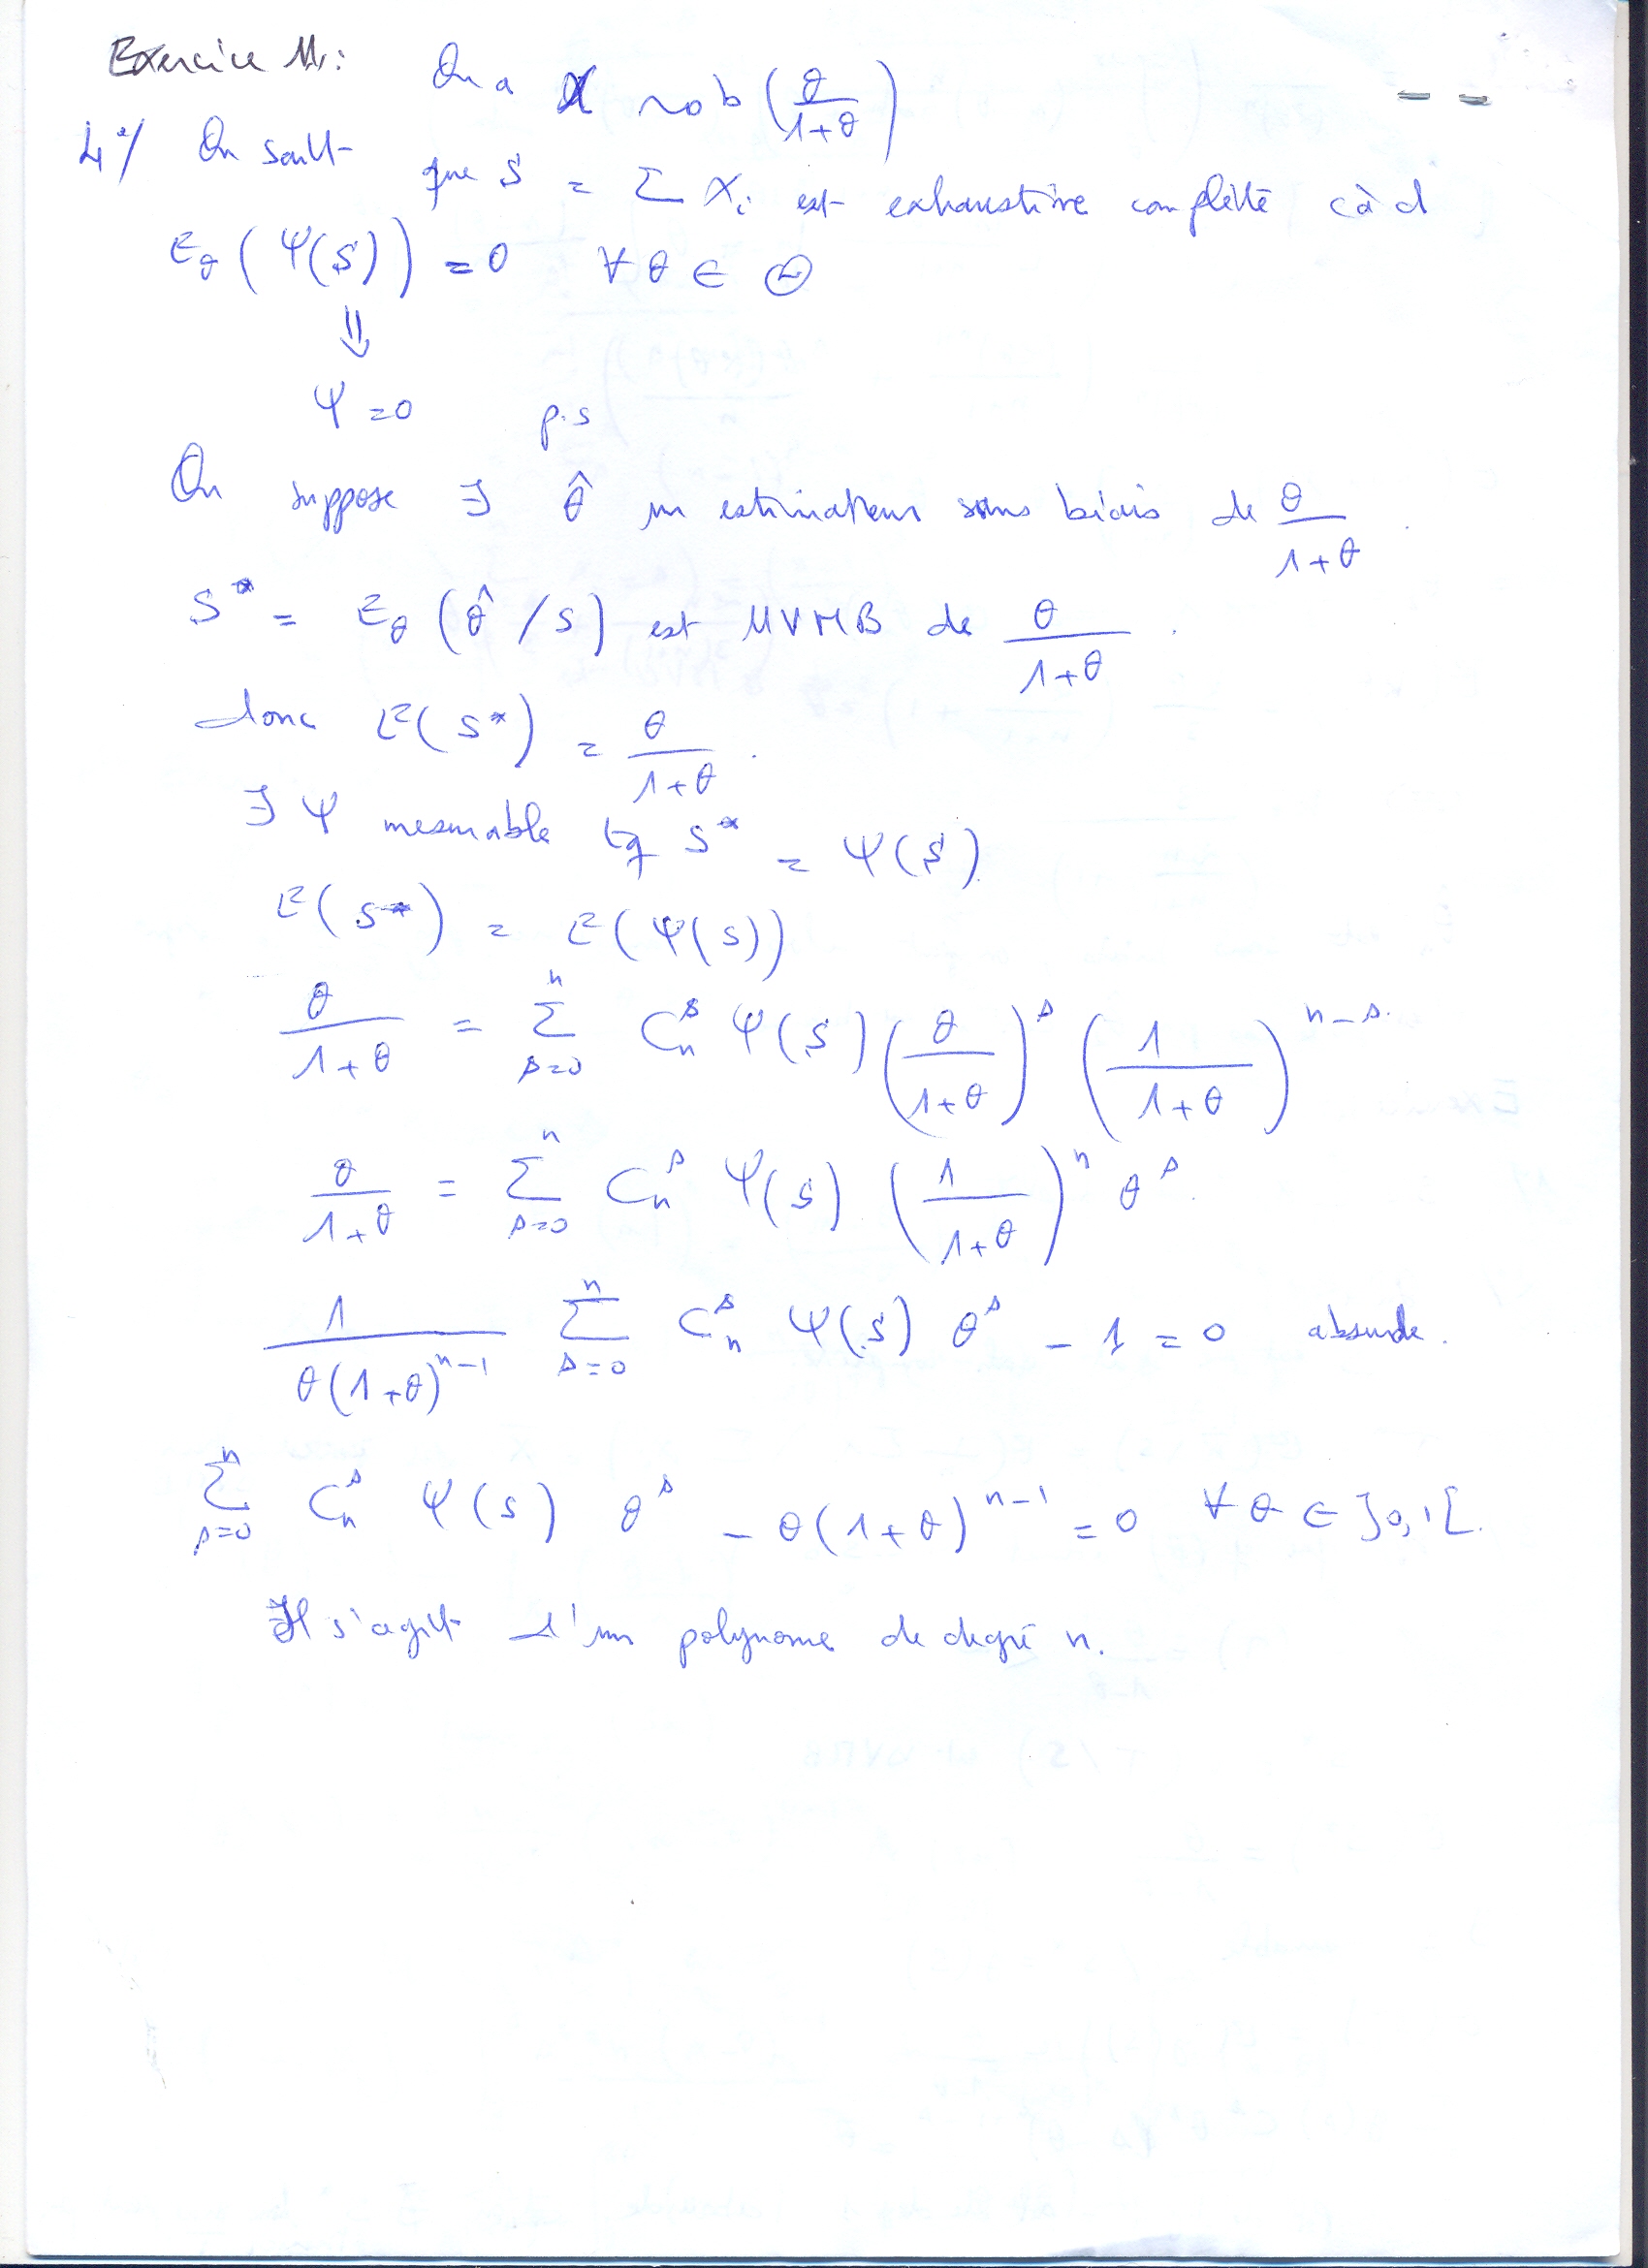 Exercice M1 : On a X ~ b(θ/(1+θ))
4°/ On sait que S = Σ Xi est exhaustive complète càd
Eθ(Ψ(S)) = 0 ∀ θ ∈ Θ
⇓
Ψ = 0 p.s
On suppose ∃ θ̂ un estimateur sans biais de θ/(1+θ).
S* = Eθ(θ̂/S) est UVMB de θ/(1+θ).
donc E(S*) = θ/(1+θ).
∃ Ψ mesurable tq S* = Ψ(S)
E(S*) = E(Ψ(S))
θ/(1+θ) = Σ_{s=0}^{n} C_n^s Ψ(s) (θ/(1+θ))^s (1/(1+θ))^{n-s}.
θ/(1+θ) = Σ_{s=0}^{n} C_n^s Ψ(s) (1/(1+θ))^n θ^s.
1/(θ(1+θ)^{n-1}) Σ_{s=0}^{n} C_n^s Ψ(s) θ^s - 1 = 0 absurde.
Σ_{s=0}^{n} C_n^s Ψ(s) θ^s - θ(1+θ)^{n-1} = 0 ∀ θ ∈ ]0,1[.
Il s'agit d'un polynome de degré n.